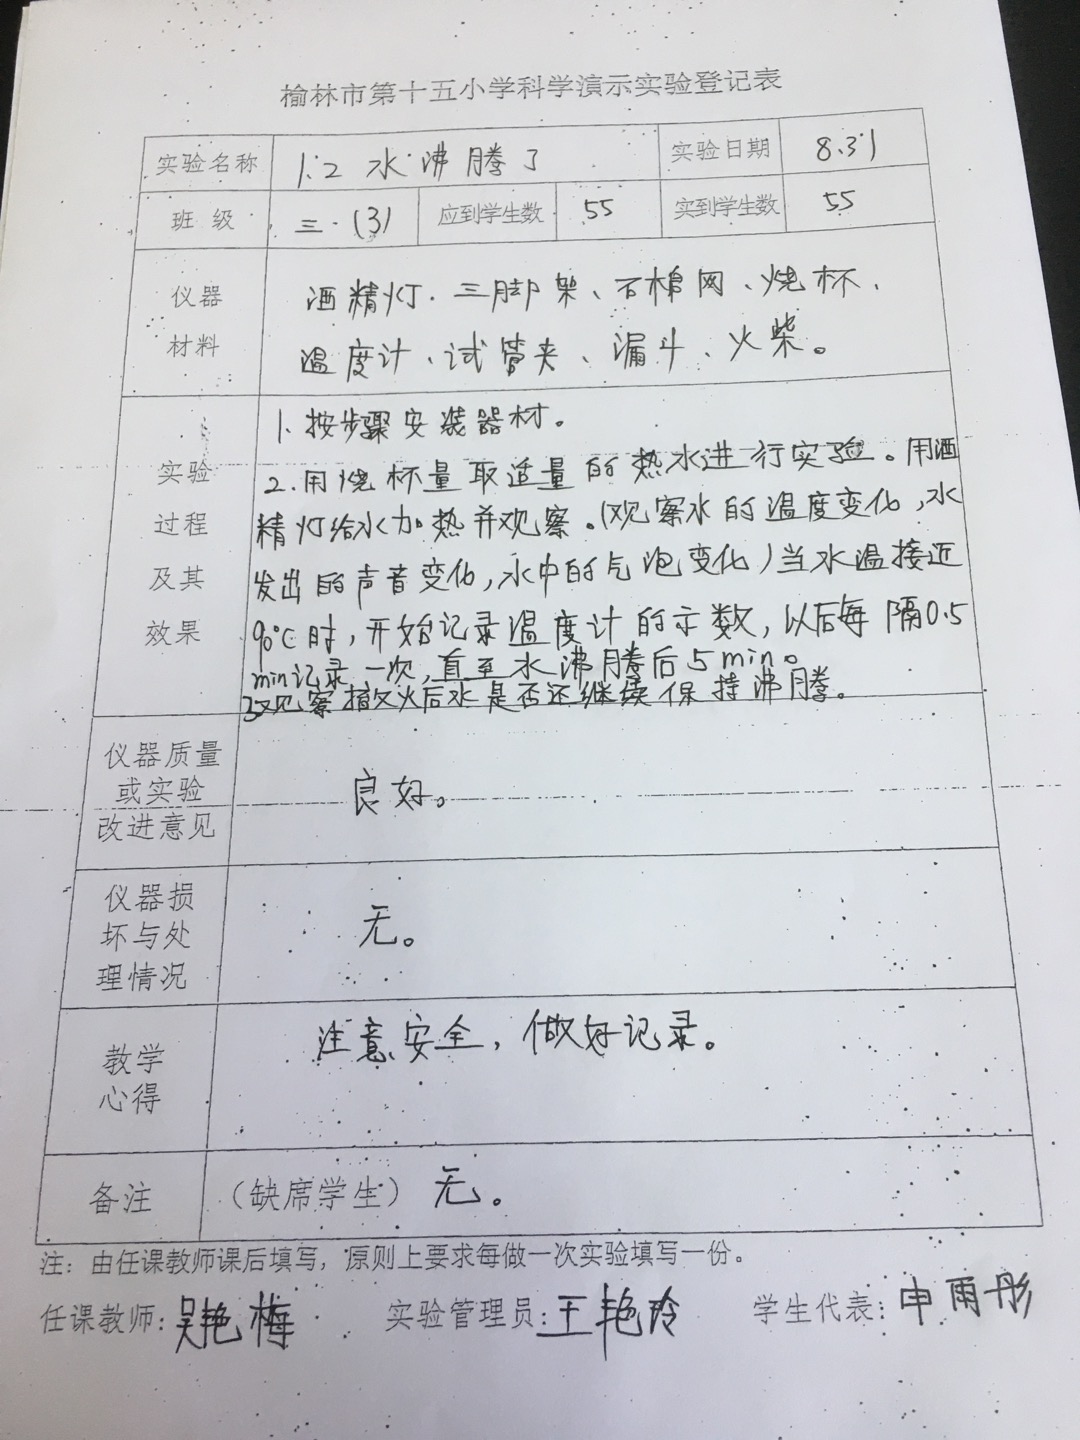 榆林市第十五小学科学演示实验登记表
实验名称 1.2 水沸腾了 实验日期 8.31
班 级 三.(3) 应到学生数 55 实到学生数 55
仪器 酒精灯、三脚架、石棉网、烧杯、
材料 温度计、试管夹、漏斗、火柴。
1.按步骤安装器材。
实验 2.用烧杯量取适量的热水进行实验。用酒
过程 精灯给水加热并观察。(观察水的温度变化,水
及其 发出的声音变化,水中的气泡变化)当水温接近
效果 90℃时,开始记录温度计的示数,以后每隔0.5
min记录一次,直至水沸腾后5min。
3.观察撤火后水是否还继续保持沸腾。
仪器质量
或实验 良好。
改进意见
仪器损
坏与处 无。
理情况
注意安全,做好记录。
教学
心得
备注 (缺席学生) 无。
注:由任课教师课后填写,原则上要求每做一次实验填写一份。
任课教师:吴艳梅 实验管理员:王艳玲 学生代表:申雨彤